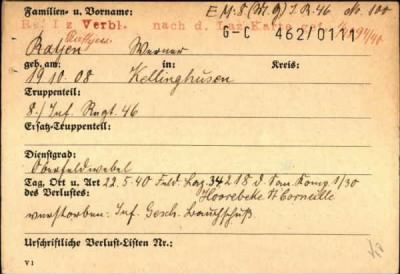 Familien- u. Vorname: E M: 8 (M.G) I.R. 46 No. 100
Re: Iz Verbl. nach d. Laz Karte
G-C 462/0111
Ratjen Werner
geb. am: in: Kreis:
19.10.08 Kellinghusen
Truppenteil:
8./Inf. Rngt. 46
Ersatz-Truppenteil:
Dienstgrad:
Oberfeldwebel
Tag, Ort u. Art 22.5.40 Feld. Laz. 34218 d. San. Komp. 1/30
des Verlustes: Hoorebeke St Corneille
verstorben: Inf. Gesch. Bauchschuß
Urschriftliche Verlust-Listen Nr.:
V 1